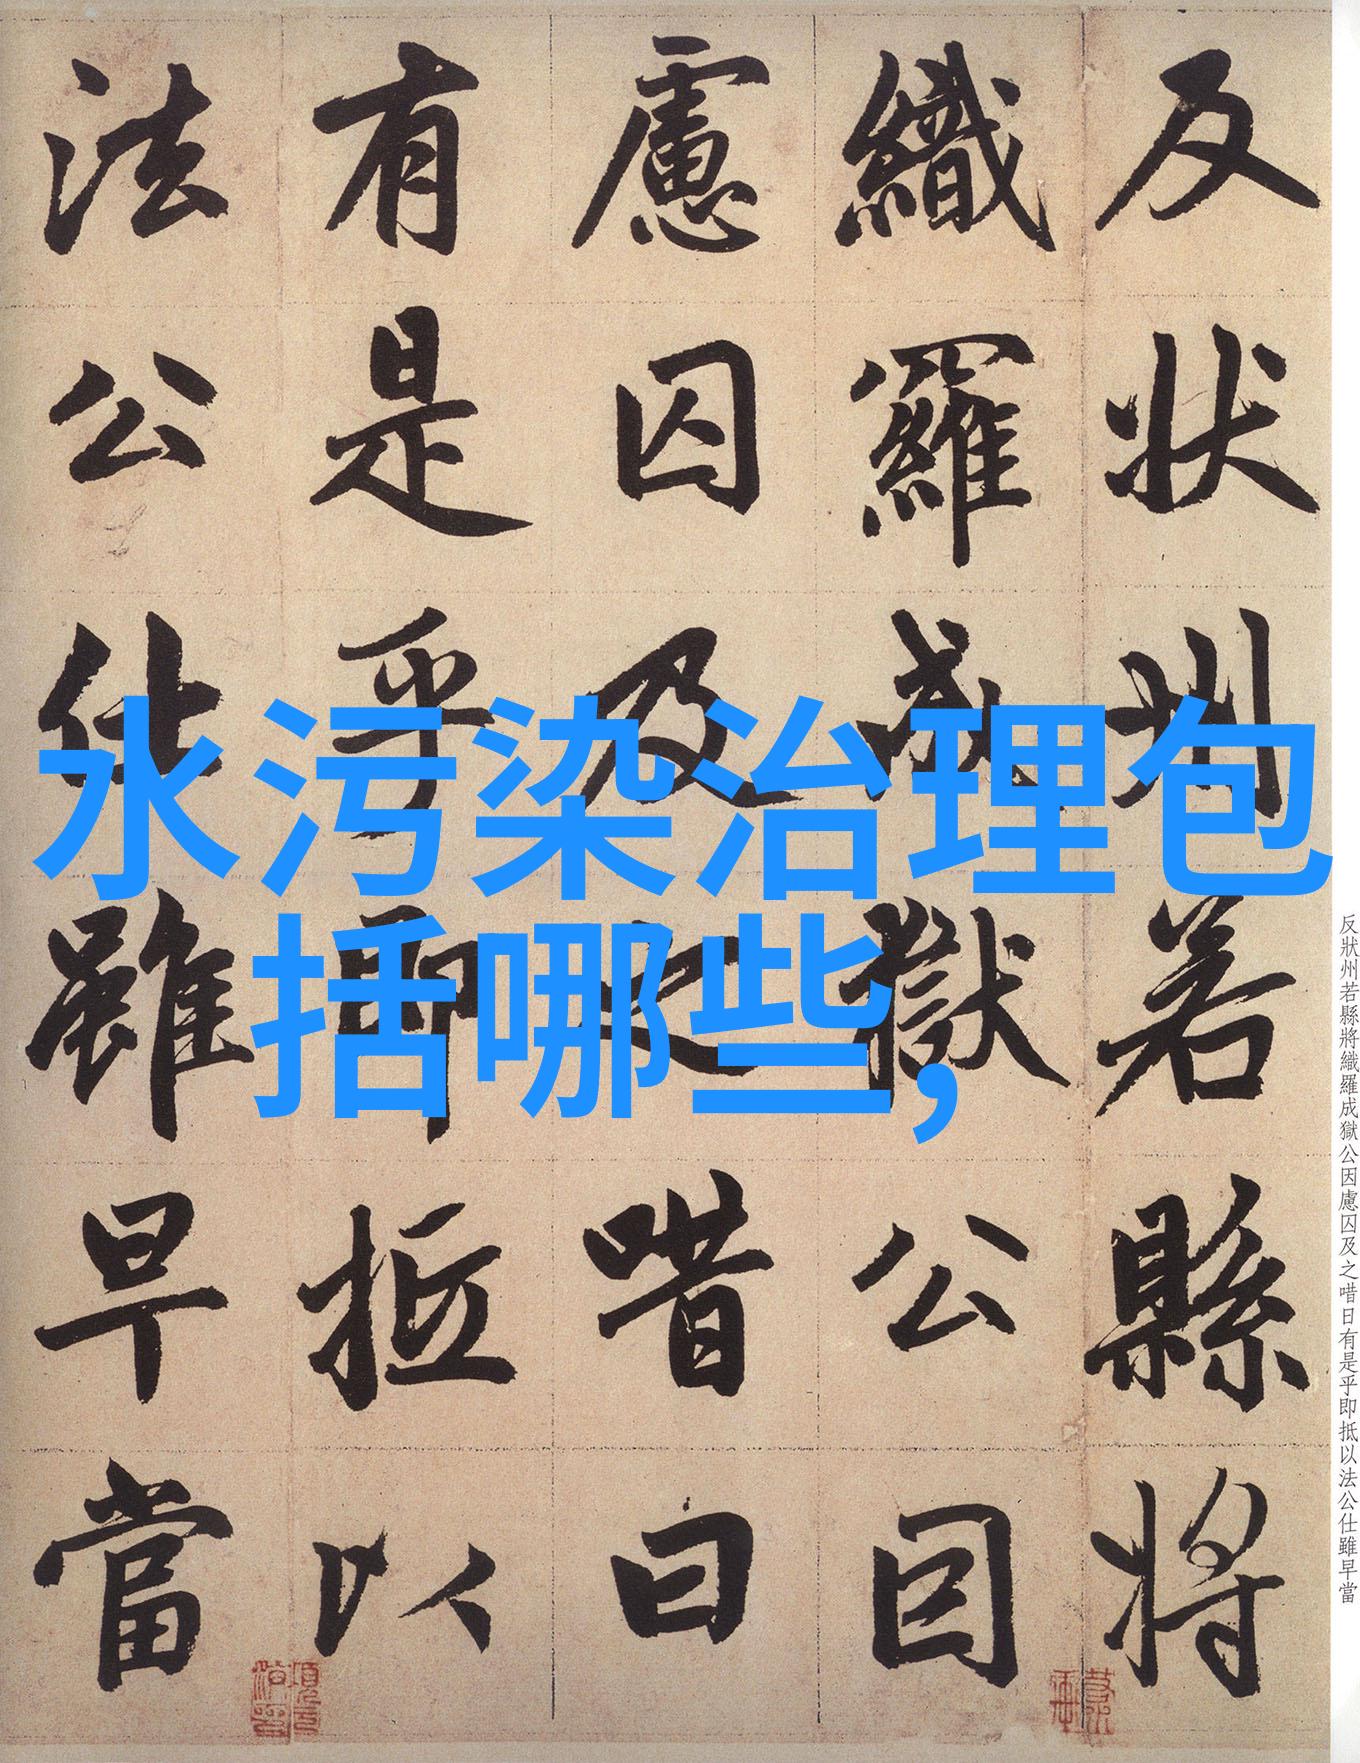 反狀州若縣將
織羅成獄公因
慮囚及之唶曰
有是乎即抵以
法公仕雖早當
水污染治理包
括哪些,
反狀州若縣將織羅成獄公因慮囚及之唶日有是乎即抵以法公仕雖早當